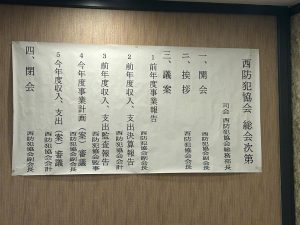 西防犯協会 総会次第
司会 西防犯協会総務部長
一、開会 西防犯協会副会長
二、挨拶 西防犯協会会長
三、議案
1 前年度事業報告 西防犯協会副会長
2 前年度収入、支出決算報告 西防犯協会会計
3 前年度収入、支出監査報告 西防犯協会監事
4 今年度事業計画(案)審議 西防犯協会副会長
5 今年度収入、支出(案)審議 西防犯協会会計
四、閉会 西防犯協会副会長